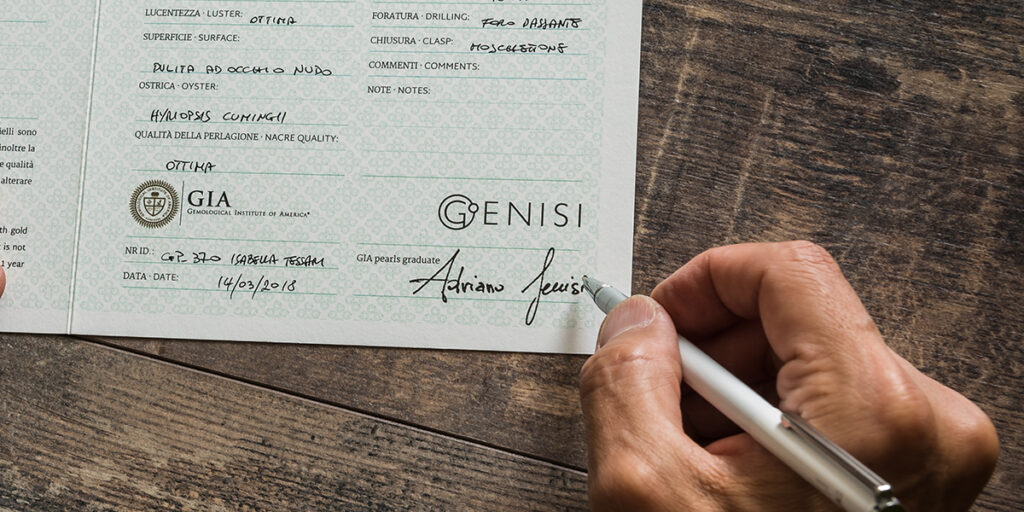 LUCENTEZZA · LUSTER: OTTIMA
SUPERFICIE · SURFACE:
PULITA AD OCCHIO NUDO
OSTRICA · OYSTER:
HYRIOPSIS CUMINGII
QUALITÀ DELLA PERLAGIONE · NACRE QUALITY:
OTTIMA
GIA
GEMOLOGICAL INSTITUTE OF AMERICA®
NR ID.: ISABELLA TESSARI
DATA · DATE: 14/03/2018
FORATURA · DRILLING: FORO PASSANTE
CHIUSURA · CLASP: MOSCHETTONE
COMMENTI · COMMENTS:
NOTE · NOTES:
GENISI
GIA pearls graduate Adriano Genisi
ielli sono
inoltre la
e qualità
alterare
th gold
is not
1 year